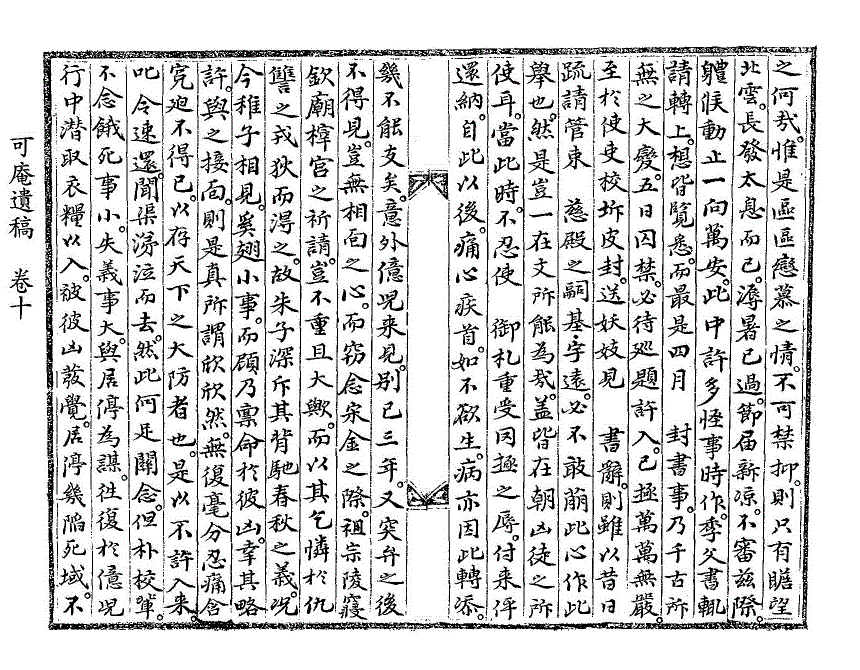 之何哉。惟是區區戀慕之情。不可禁抑。則只有瞻望
北雲。長發太息而已。溽暑已過。節屆新凉。不審玆際。
軆候動止一向萬安。此中許多怪事時作。季父書輒
請轉上。想皆覽悉。而最是四月 封書事。乃千古所
無之大變。五日囚禁。必待廵題許入。已極萬萬無嚴。
至於使吏校坼皮封。送妖妓見 書辭。則雖以昔日
疏請管束 慈殿之嗣基,字遠。必不敢萠此心作此
擧也。然是豈一在文所能為哉。盖皆在朝凶徒之所
使耳。當此時。不忍使 御札重受罔極之辱。付来伻
還納。自此以後。痛心疾首。如不欲生。病亦因此轉添。
幾不能支矣。意外億児来見。別已三年。又突弁之後
不得見。豈無相面之心。而窃念宋金之際。祖宗陵寢
欽廟梓宮之祈請。豈不重且大歟。而以其乞憐於仇
讐之戎狄而淂之。故朱子深斥其背馳春秋之義。况
今稚子相見。奚翅小事。而顧乃禀命於彼凶。幸其略
許。與之接面。則是真所謂欣欣然。無復毫分忍痛含
寃廹不得已。以存天下之大防者也。是以不許入来。
叱令速還。聞渠涕泣而去。然此何足關念。但朴校輩。
不念餓死事小。失義事大。與居停為謀。徃復於億児
行中潜取衣糧以入。被彼凶發覺。居停幾陷死域。不
可庵遺稿 卷十